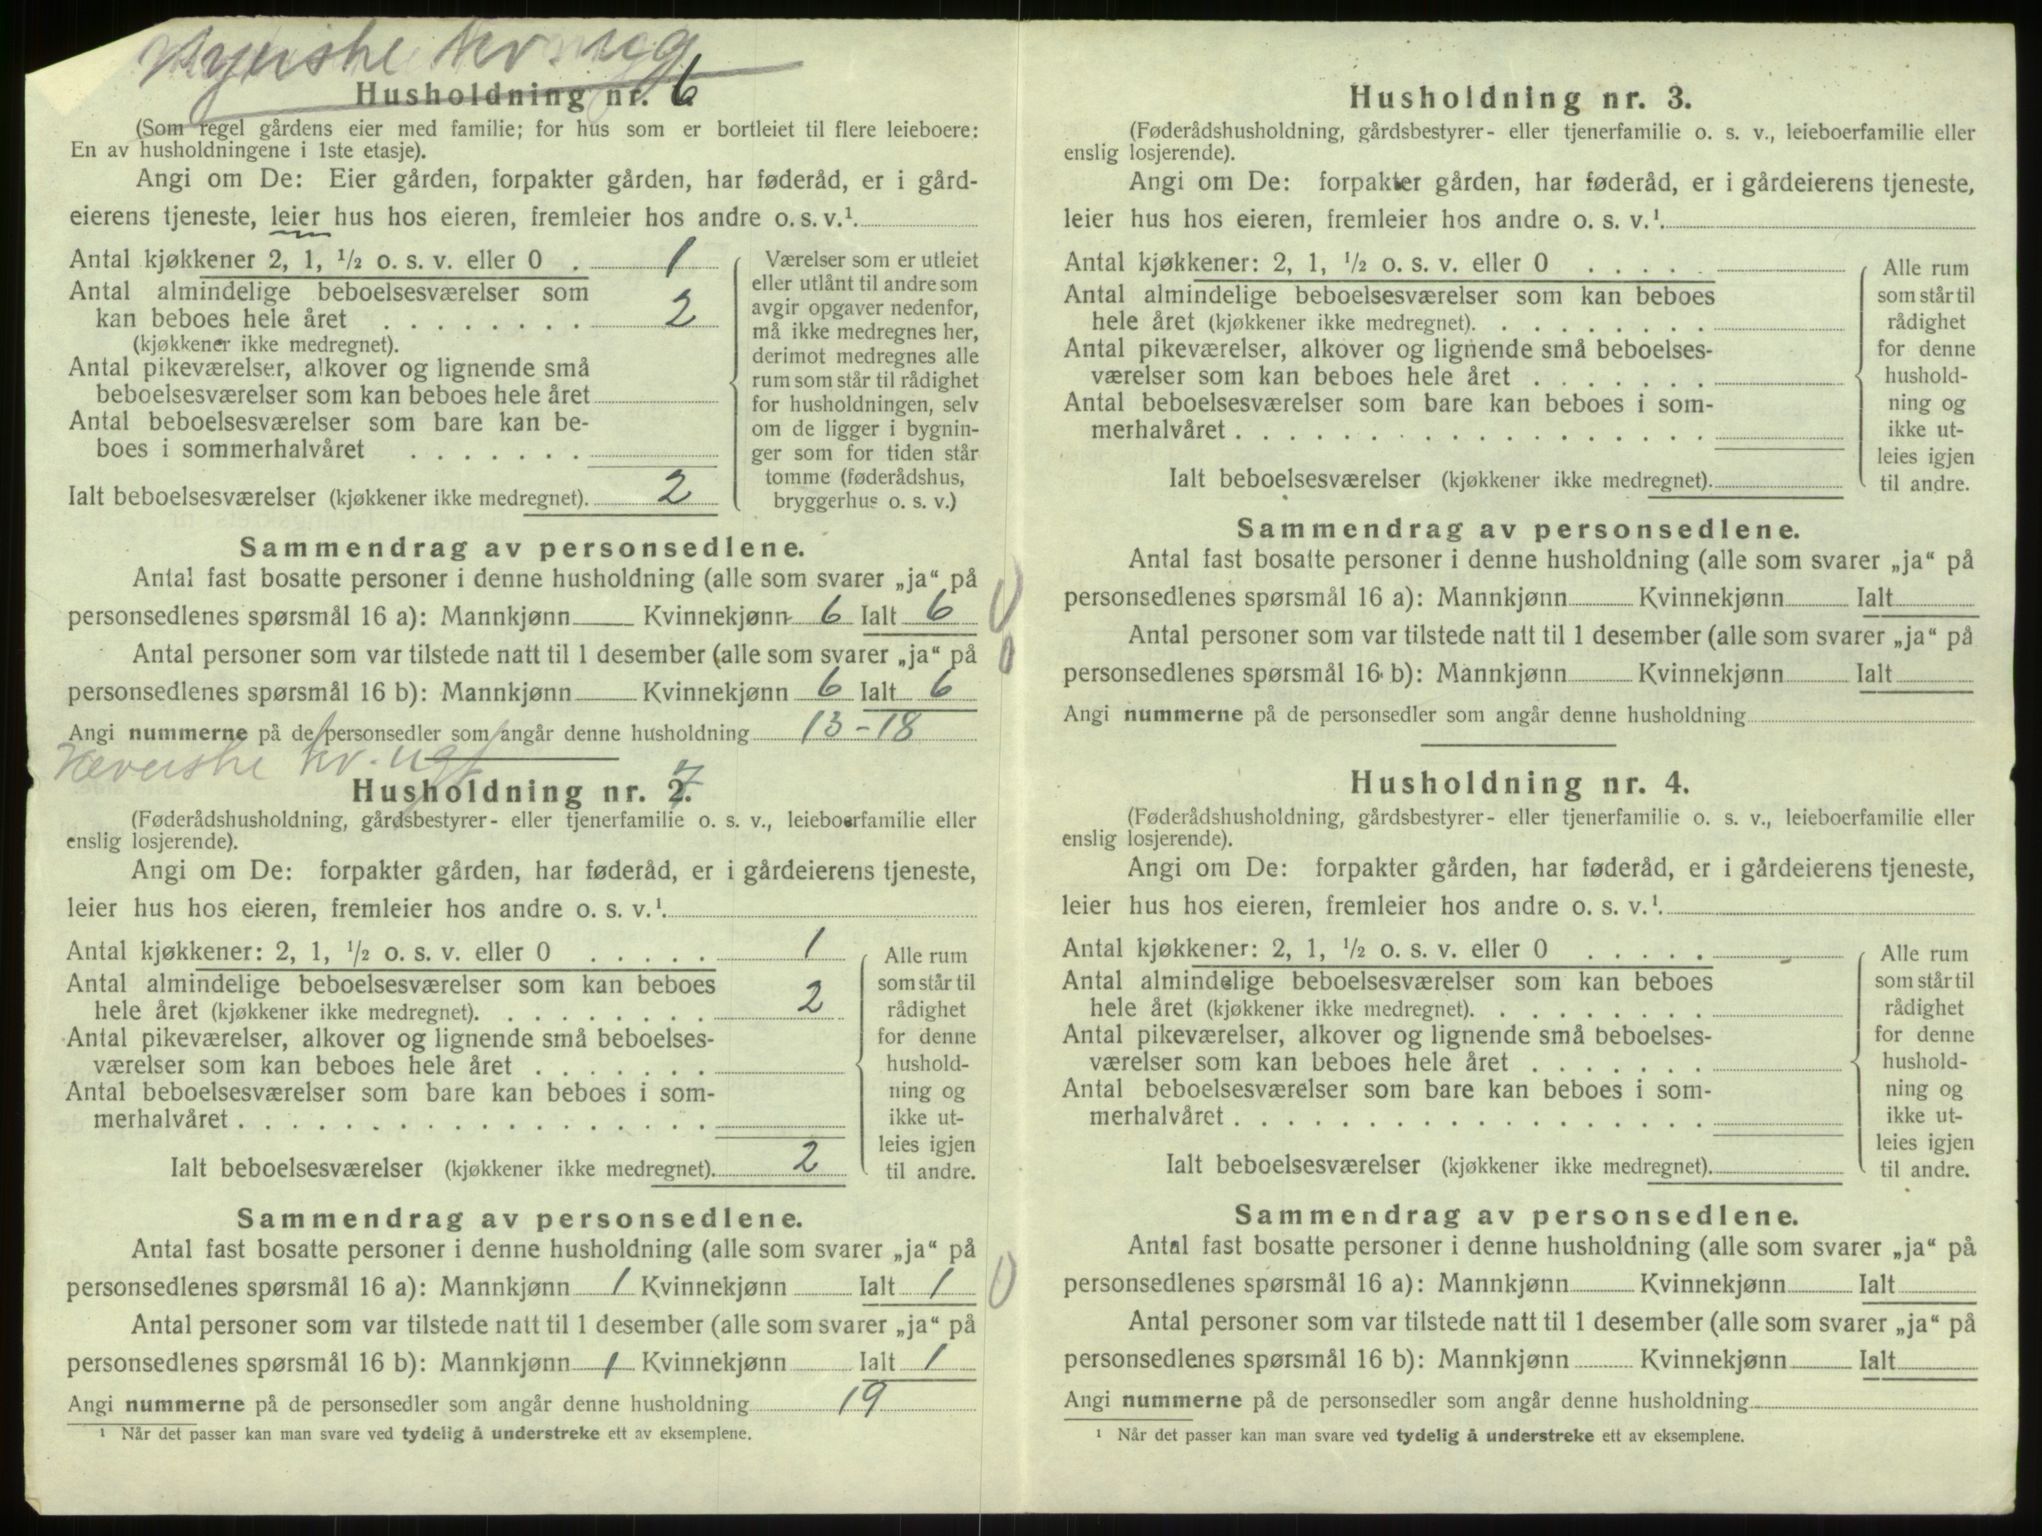 Husholdning nr. 6.
(Som regel gårdens eier med familie; for hus som er bortleiet til flere leieboere:
En av husholdningene i 1ste etasje).
Angi om De: Eier gården, forpakter gården, har føderåd, er i gård-
eierens tjeneste, leier hus hos eieren, fremleier hos andre o. s. v.¹
Antal kjøkkener 2, 1, ½ o. s. v. eller 0 . 1
Antal almindelige beboelsesværelser som
kan beboes hele året . . . . . . . . 2
(kjøkkener ikke medregnet).
Antal pikeværelser, alkover og lignende små
beboelsesværelser som kan beboes hele året
Antal beboelsesværelser som bare kan be-
boes i sommerhalvåret . . . . . . .
Ialt beboelsesværelser (kjøkkener ikke medregnet). 2
Værelser som er utleiet
eller utlånt til andre som
avgir opgaver nedenfor,
må ikke medregnes her,
derimot medregnes alle
rum som står til rådighet
for husholdningen, selv
om de ligger i bygnin-
ger som for tiden står
tomme (føderådshus,
bryggerhus o. s. v.)
Sammendrag av personsedlene.
Antal fast bosatte personer i denne husholdning (alle som svarer „ja“ på
personsedlenes spørsmål 16 a): Mannkjønn — Kvinnekjønn 6 Ialt 6
Antal personer som var tilstede natt til 1 desember (alle som svarer „ja“ på
personsedlenes spørsmål 16 b): Mannkjønn — Kvinnekjønn 6 Ialt 6
Angi nummerne på de personsedler som angår denne husholdning 13-18
Husholdning nr. 7.
(Føderådshusholdning, gårdsbestyrer- eller tjenerfamilie o. s. v., leieboerfamilie eller
enslig losjerende).
Angi om De: forpakter gården, har føderåd, er i gårdeierens tjeneste,
leier hus hos eieren, fremleier hos andre o. s. v.¹
Antal kjøkkener: 2, 1, ½ o. s. v. eller 0 . . . . . 1
Antal almindelige beboelsesværelser som kan beboes
hele året (kjøkkener ikke medregnet). . . . . . . . . 2
Antal pikeværelser, alkover og lignende små beboelses-
værelser som kan beboes hele året . . . . . . .
Antal beboelsesværelser som bare kan beboes i som-
merhalvåret . . . . . . . . . . . . . . . . . .
Ialt beboelsesværelser (kjøkkener ikke medregnet). 2
Alle rum
som står til
rådighet
for denne
hushold-
ning og
ikke ut-
leies igjen
til andre.
Sammendrag av personsedlene.
Antal fast bosatte personer i denne husholdning (alle som svarer „ja“ på
personsedlenes spørsmål 16 a): Mannkjønn 1 Kvinnekjønn Ialt 1
Antal personer som var tilstede natt til 1 desember (alle som svarer „ja“ på
personsedlenes spørsmål 16 b): Mannkjønn 1 Kvinnekjønn Ialt 1
Angi nummerne på de personsedler som angår denne husholdning 19
¹ Når det passer kan man svare ved tydelig å understreke ett av eksemplene.
Husholdning nr. 3.
(Føderådshusholdning, gårdsbestyrer- eller tjenerfamilie o. s. v., leieboerfamilie eller
enslig losjerende).
Angi om De: forpakter gården, har føderåd, er i gårdeierens tjeneste,
leier hus hos eieren, fremleier hos andre o. s. v.¹
Antal kjøkkener: 2, 1, ½ o. s. v. eller 0 . . . . .
Antal almindelige beboelsesværelser som kan beboes
hele året (kjøkkener ikke medregnet). . . . . . . . .
Antal pikeværelser, alkover og lignende små beboelses-
værelser som kan beboes hele året . . . . . . .
Antal beboelsesværelser som bare kan beboes i som-
merhalvåret . . . . . . . . . . . . . . . . . .
Ialt beboelsesværelser (kjøkkener ikke medregnet).
Alle rum
som står til
rådighet
for denne
hushold-
ning og
ikke ut-
leies igjen
til andre.
Sammendrag av personsedlene.
Antal fast bosatte personer i denne husholdning (alle som svarer „ja“ på
personsedlenes spørsmål 16 a): Mannkjønn Kvinnekjønn Ialt
Antal personer som var tilstede natt til 1 desember (alle som svarer „ja“ på
personsedlenes spørsmål 16 b): Mannkjønn Kvinnekjønn Ialt
Angi nummerne på de personsedler som angår denne husholdning
Husholdning nr. 4.
(Føderådshusholdning, gårdsbestyrer- eller tjenerfamilie o. s. v., leieboerfamilie eller
enslig losjerende).
Angi om De: forpakter gården, har føderåd, er i gårdeierens tjeneste,
leier hus hos eieren, fremleier hos andre o. s. v.¹
Antal kjøkkener: 2, 1, ½ o. s. v. eller 0 . . . . .
Antal almindelige beboelsesværelser som kan beboes
hele året (kjøkkener ikke medregnet). . . . . . . . .
Antal pikeværelser, alkover og lignende små beboelses-
værelser som kan beboes hele året . . . . . . .
Antal beboelsesværelser som bare kan beboes i som-
merhalvåret . . . . . . . . . . . . . . . . . .
Ialt beboelsesværelser (kjøkkener ikke medregnet).
Alle rum
som står til
rådighet
for denne
hushold-
ning og
ikke ut-
leies igjen
til andre.
Sammendrag av personsedlene.
Antal fast bosatte personer i denne husholdning (alle som svarer „ja“ på
personsedlenes spørsmål 16 a): Mannkjønn Kvinnekjønn Ialt
Antal personer som var tilstede natt til 1 desember (alle som svarer „ja“ på
personsedlenes spørsmål 16 b): Mannkjønn Kvinnekjønn Ialt
Angi nummerne på de personsedler som angår denne husholdning
¹ Når det passer kan man svare ved tydelig å understreke ett av eksemplene.